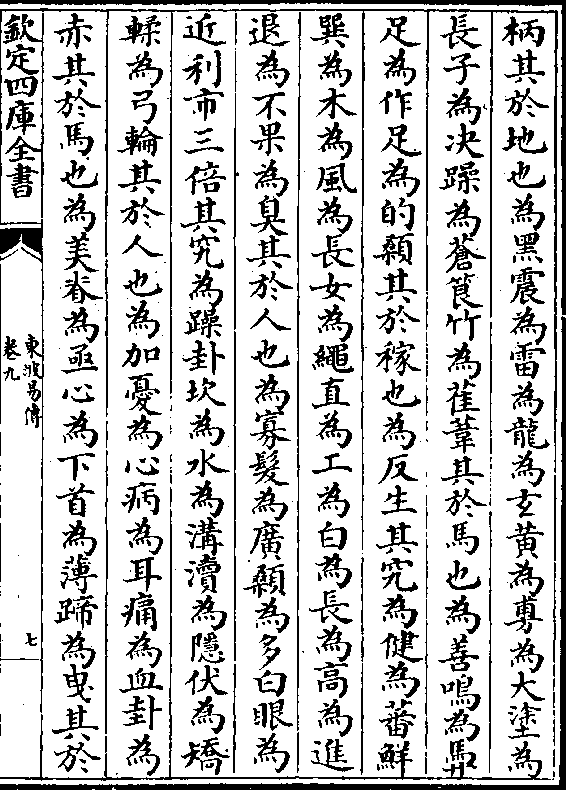 柄其於地也為黑震為雷為龍為玄黄為旉為大塗為
長子為决躁為蒼筤竹為萑葦其於馬也為善鳴為馵
足為作足為的顙其於稼也為反生其究為健為蕃鮮
巽為木為風為長女為繩直為工為白為長為高為進
退為不果為臭其於人也為寡髮為廣顙為多白眼為
近利市三倍其究為躁卦坎為水為溝瀆為隱伏為矯
輮為弓輪其於人也為加憂為心病為耳痛為血卦為
赤其於馬也為美脊為亟心為下首為薄蹄為曳其於
欽定四庫全書
東坡易傳
卷九
七